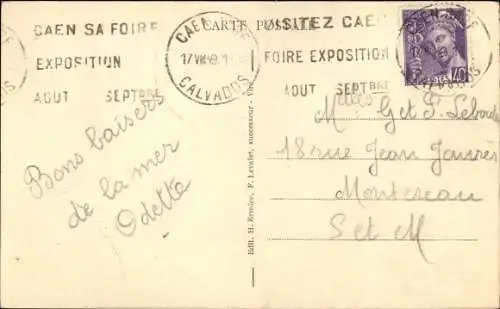 CARTE POSTALE
CAEN SA FOIRE
EXPOSITION
AOUT SEPTBRE
CAEN
17 VII
CALVADOS
VISITEZ CAEN
FOIRE EXPOSITION
AOUT SEPTBRE
CAEN
40
Bons baisers
de la mer
Odette
Edit. H. Ermice, F. Levalet, successeur
Melles G et P. Lebou
18 rue Jean Jaurès
Montereau
S et M